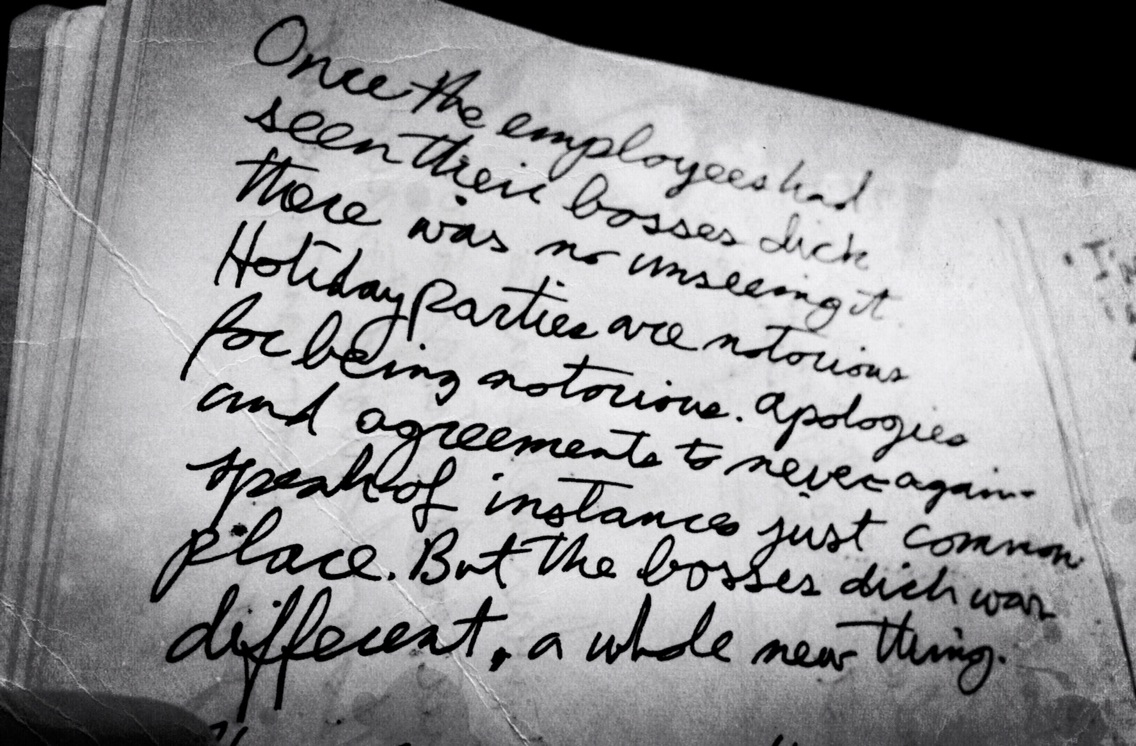 Once the employees had
seen their bosses dick
there was no unseeing it
Holiday parties are notorious
for being notorious. Apologies
and agreements to never again
speak of instances just common
place. But the bosses dick was
different, a whole new thing.